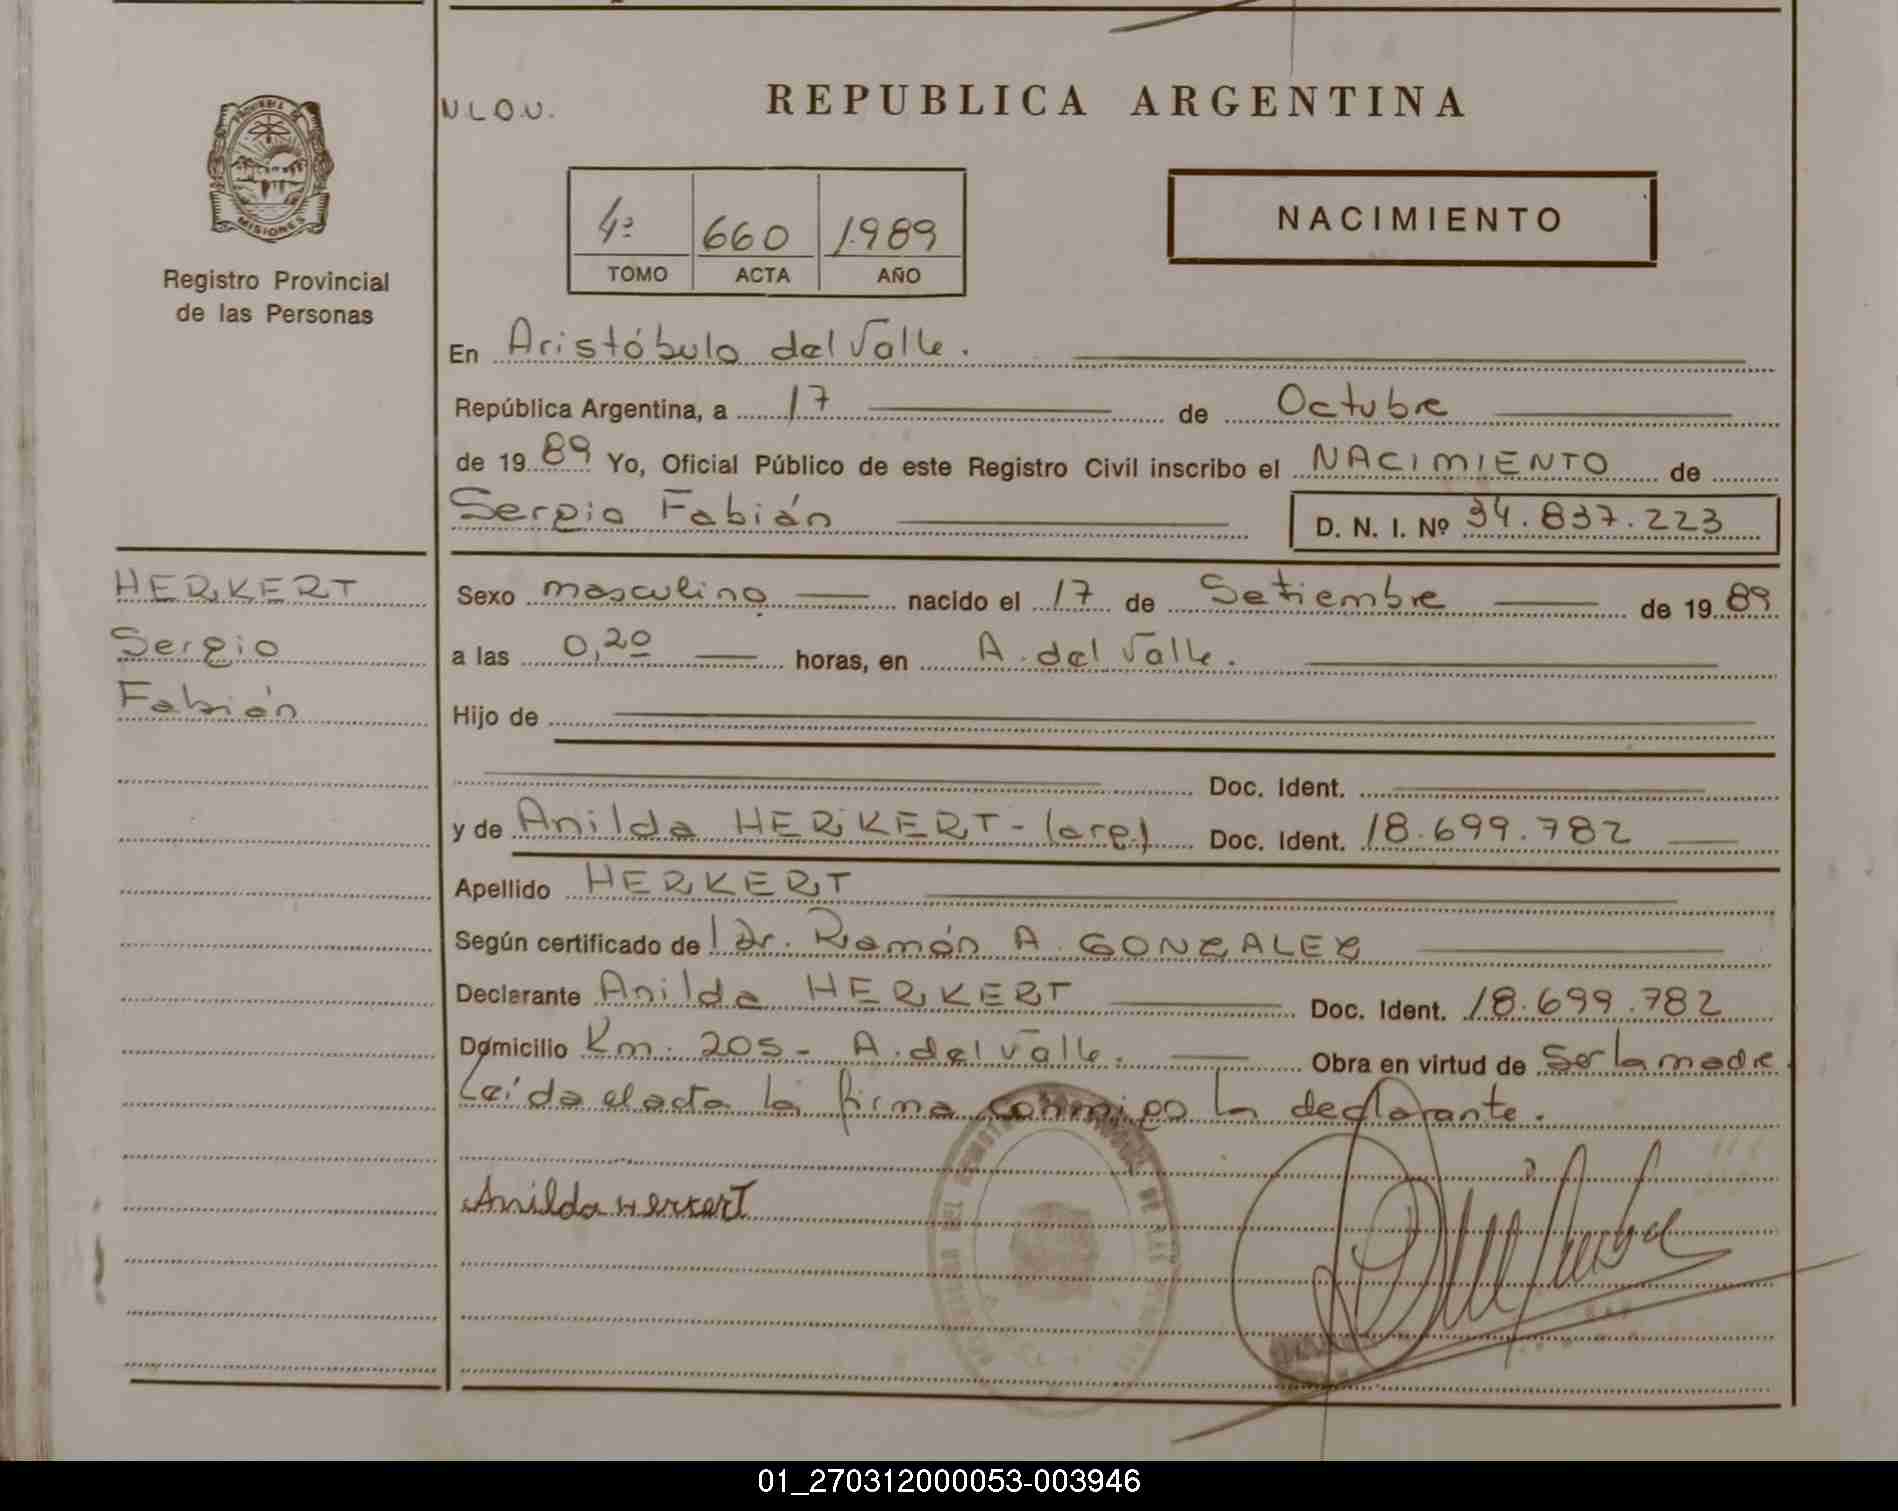 REPUBLICA ARGENTINA
N.L.O.V.
PROVINCIA DE
MISIONES
Registro Provincial
de las Personas
4º 660 1989
TOMO ACTA AÑO
NACIMIENTO
En Aristóbulo del Valle.
República Argentina, a 17 de Octubre
de 1989 Yo, Oficial Público de este Registro Civil inscribo el NACIMIENTO de
Sergio Fabián D. N. I. Nº 34.837.223
HERKERT
Sergio
Fabián
Sexo masculino nacido el 17 de Setiembre de 1989
a las 0,20 horas, en A. del Valle.
Hijo de
Doc. Ident.
y de Anilda HERKERT - (arg.) Doc. Ident. 18.699.782
Apellido HERKERT
Según certificado de Dr. Ramón A. GONZALEZ
Declarante Anilda HERKERT Doc. Ident. 18.699.782
Domicilio Km. 205 - A. del Valle. Obra en virtud de Ser la madre.
Leída el acta la firma conmigo la declarante.
Anilda Herkert
01_270312000053-003946